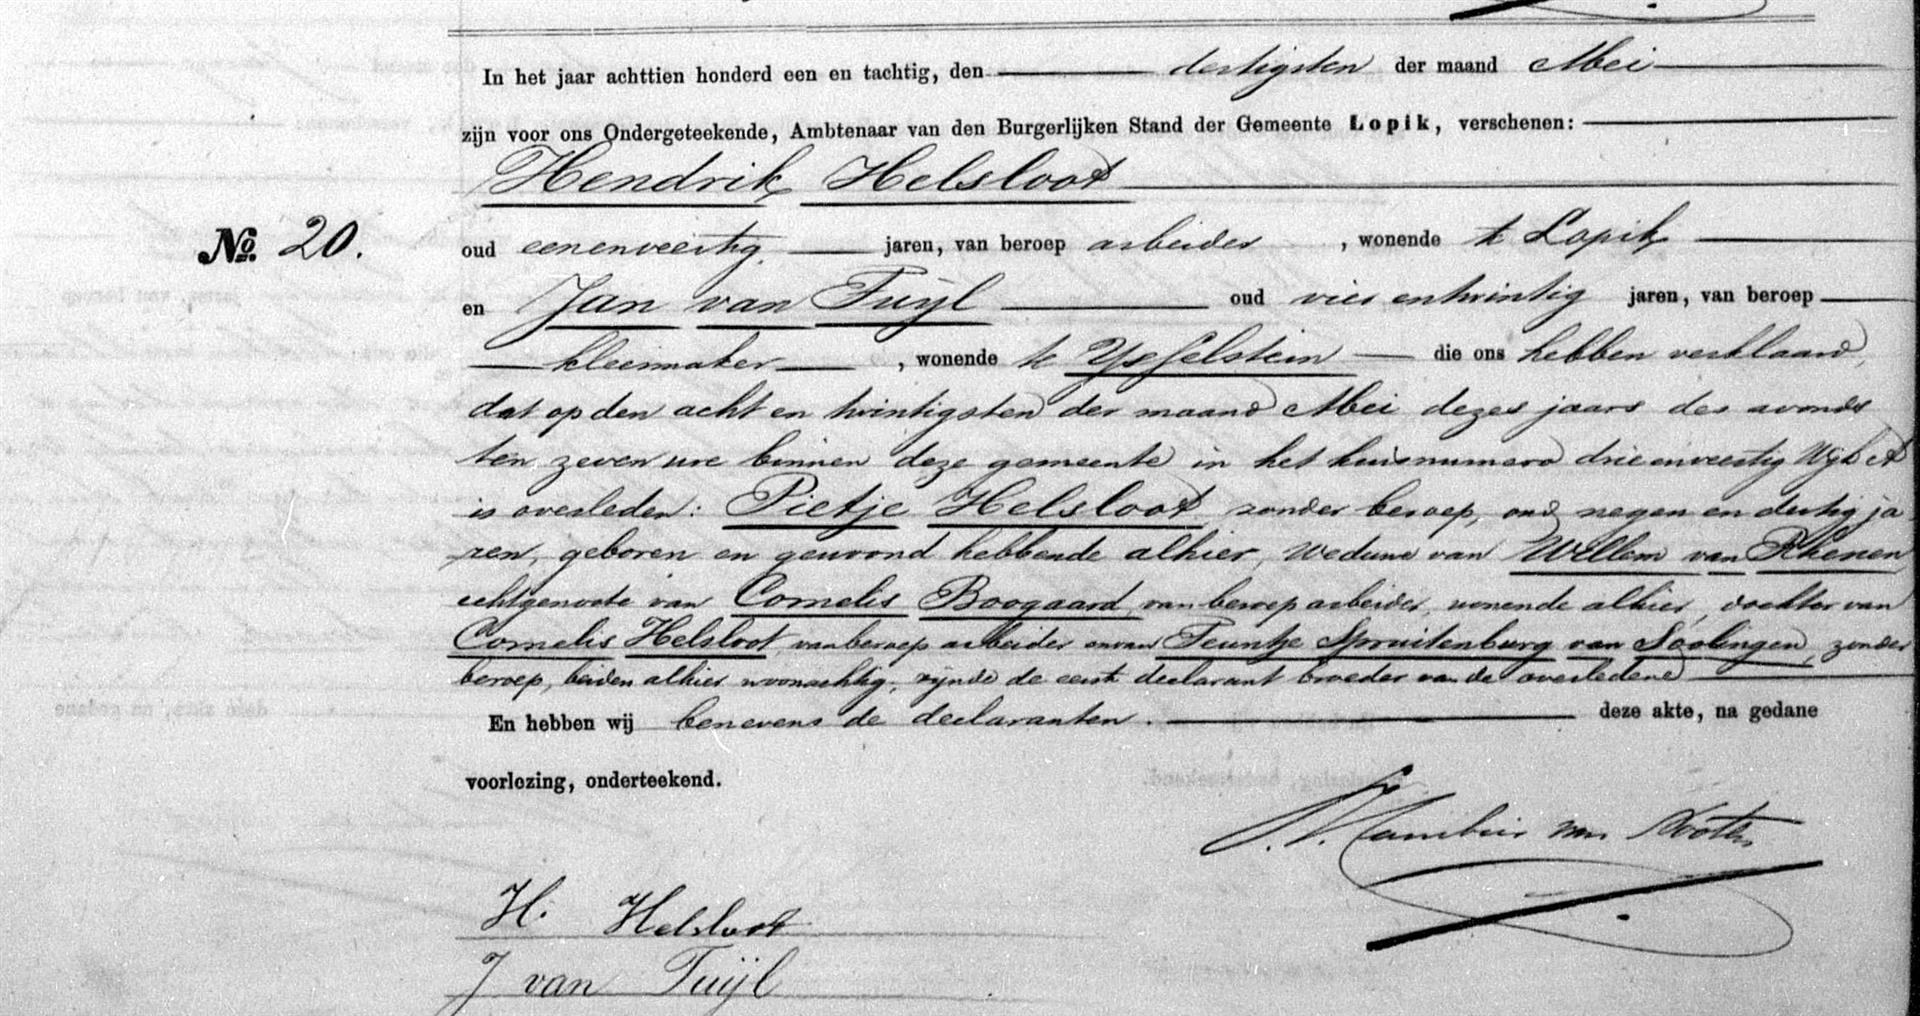 In het jaar achttien honderd een en tachtig, den dertigsten der maand Mei
zijn voor ons Ondergeteekende, Ambtenaar van den Burgerlijken Stand der Gemeente Lopik, verschenen:
Hendrik Helsloot
No. 20.
oud eenenveertig jaren, van beroep arbeider, wonende te Lopik
en Jan van Tuijl oud vier entwintig jaren, van beroep
kleermaker, wonende te Ysselstein die ons hebben verklaard,
dat op den acht en twintigsten der maand Mei dezes jaars des avonds
ten zeven ure binnen deze gemeente in het huis numero drie enveertig Wijk A
is overleden: Pietje Helsloot zonder beroep, oud negen en dertig ja
ren, geboren en gewoond hebbende alhier, weduwe van Willem van Rhenen
echtgenoote van Cornelis Boogaard, van beroep arbeider, wonende alhier, dochter van
Cornelis Helsloot, van beroep arbeider en van Teuntje Spruitenburg van Soolingen, zonder
beroep, beiden alhier woonachtig, zijnde de eerste declarant broeder van de overledene
En hebben wij benevens de declaranten. deze akte, na gedane
voorlezing, onderteekend.
van Nooten
H. Helsloot
J van Tuijl